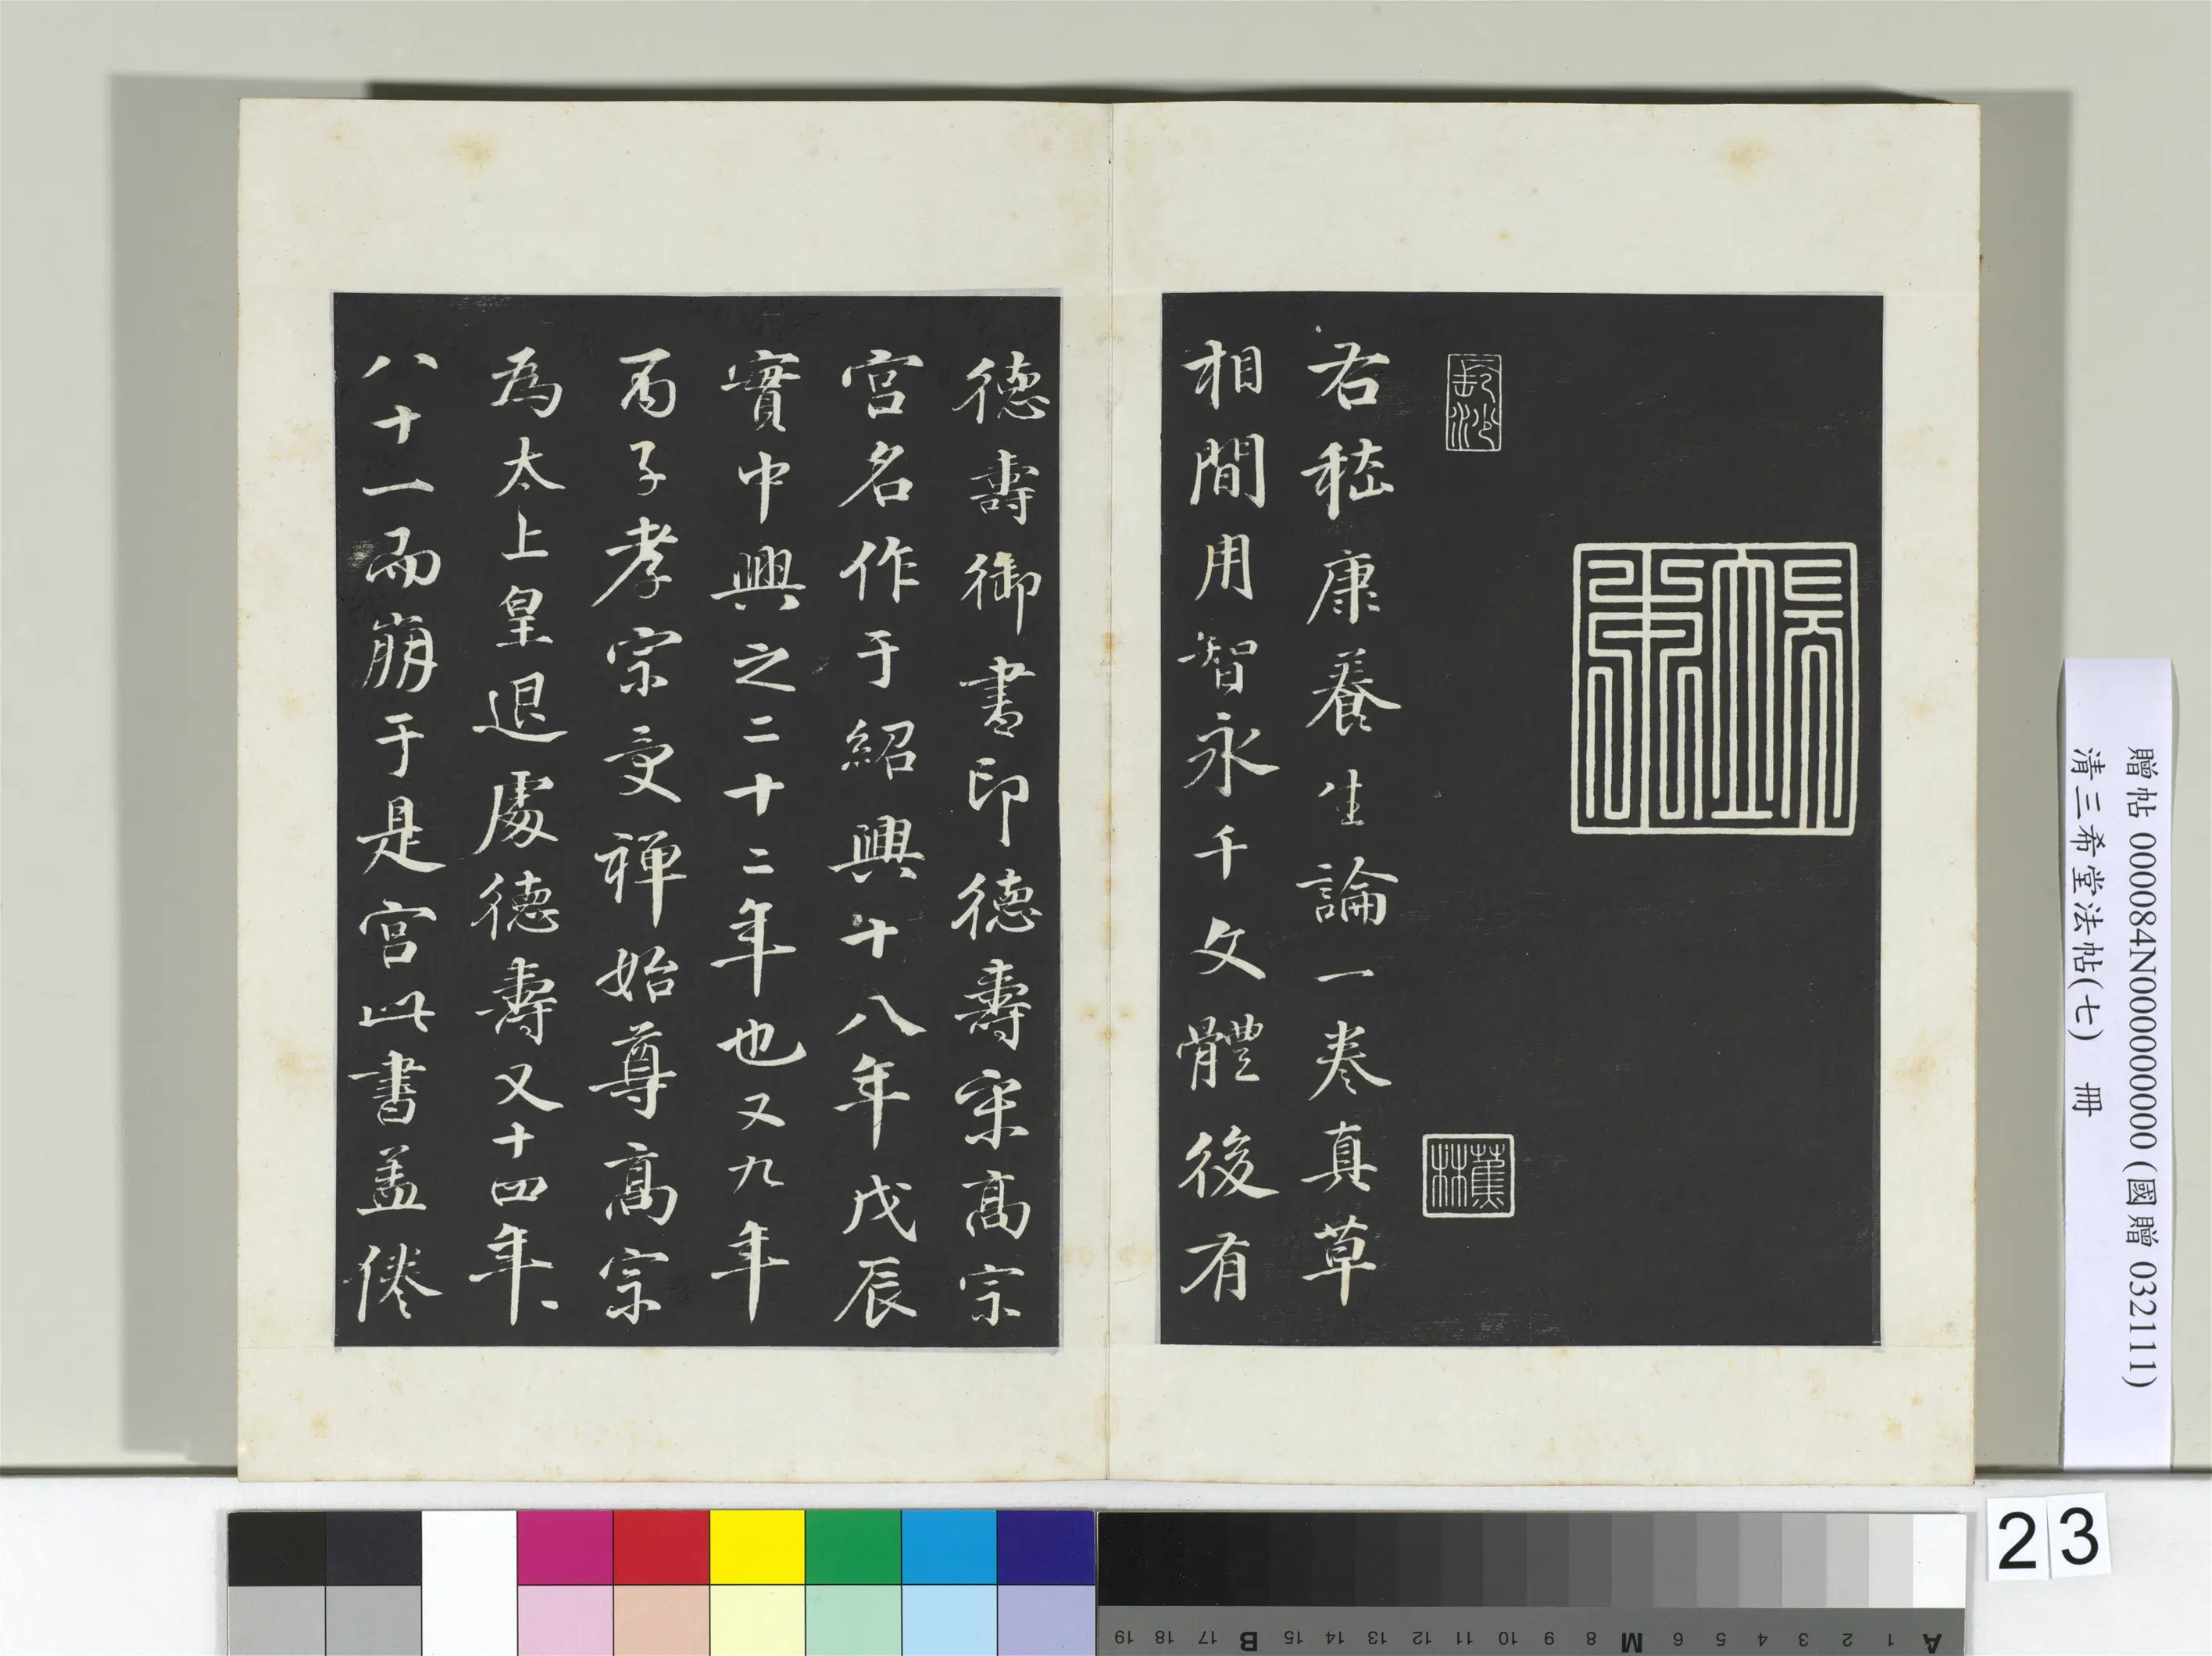 長沙
蕉林
右嵇康養生論一卷真草
相間用智永千文體後有
德壽御書印德壽宋高宗
宮名作于紹興十八年戊辰
實中興之二十二年也又九年
丙子孝宗受禪始尊高宗
為太上皇退處德壽又十四年
八十一而崩于是宮此書蓋倦
贈帖 000084N000000000 (國贈 032111)
清三希堂法帖(七) 冊
23
19 18 17 B 15 14 13 12 11 10 9 8 M 6 5 4 3 2 1 A